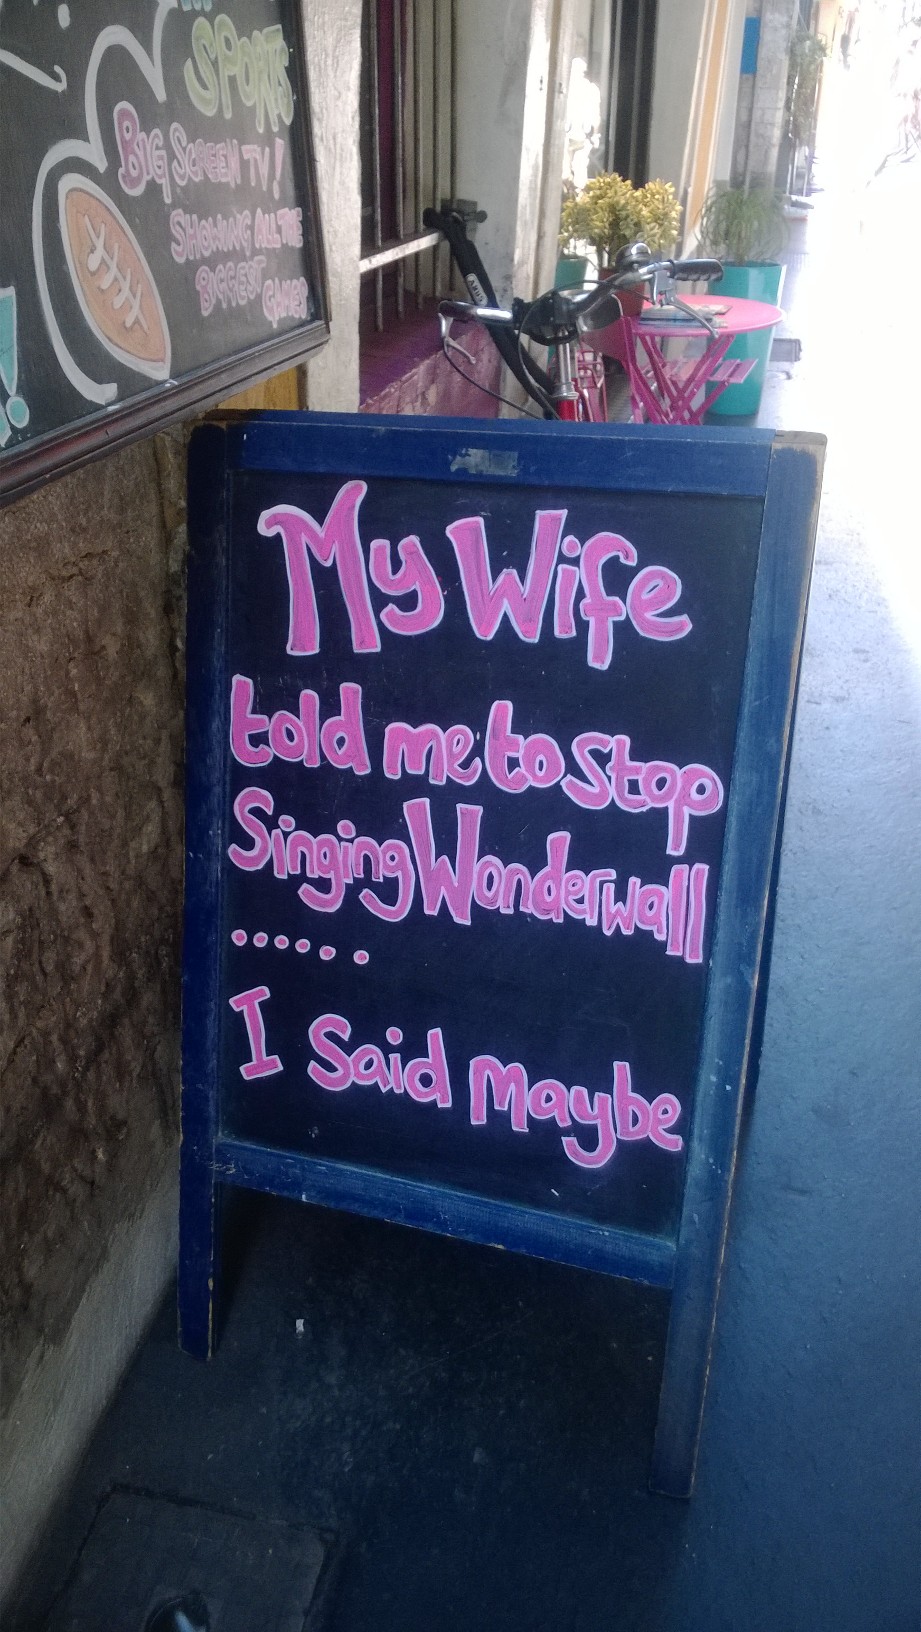 SPORTS
BIG SCREEN TV!
SHOWING ALL THE
BIGGEST
GAMES
My Wife
told me to Stop
Singing Wonderwall
......
I Said Maybe